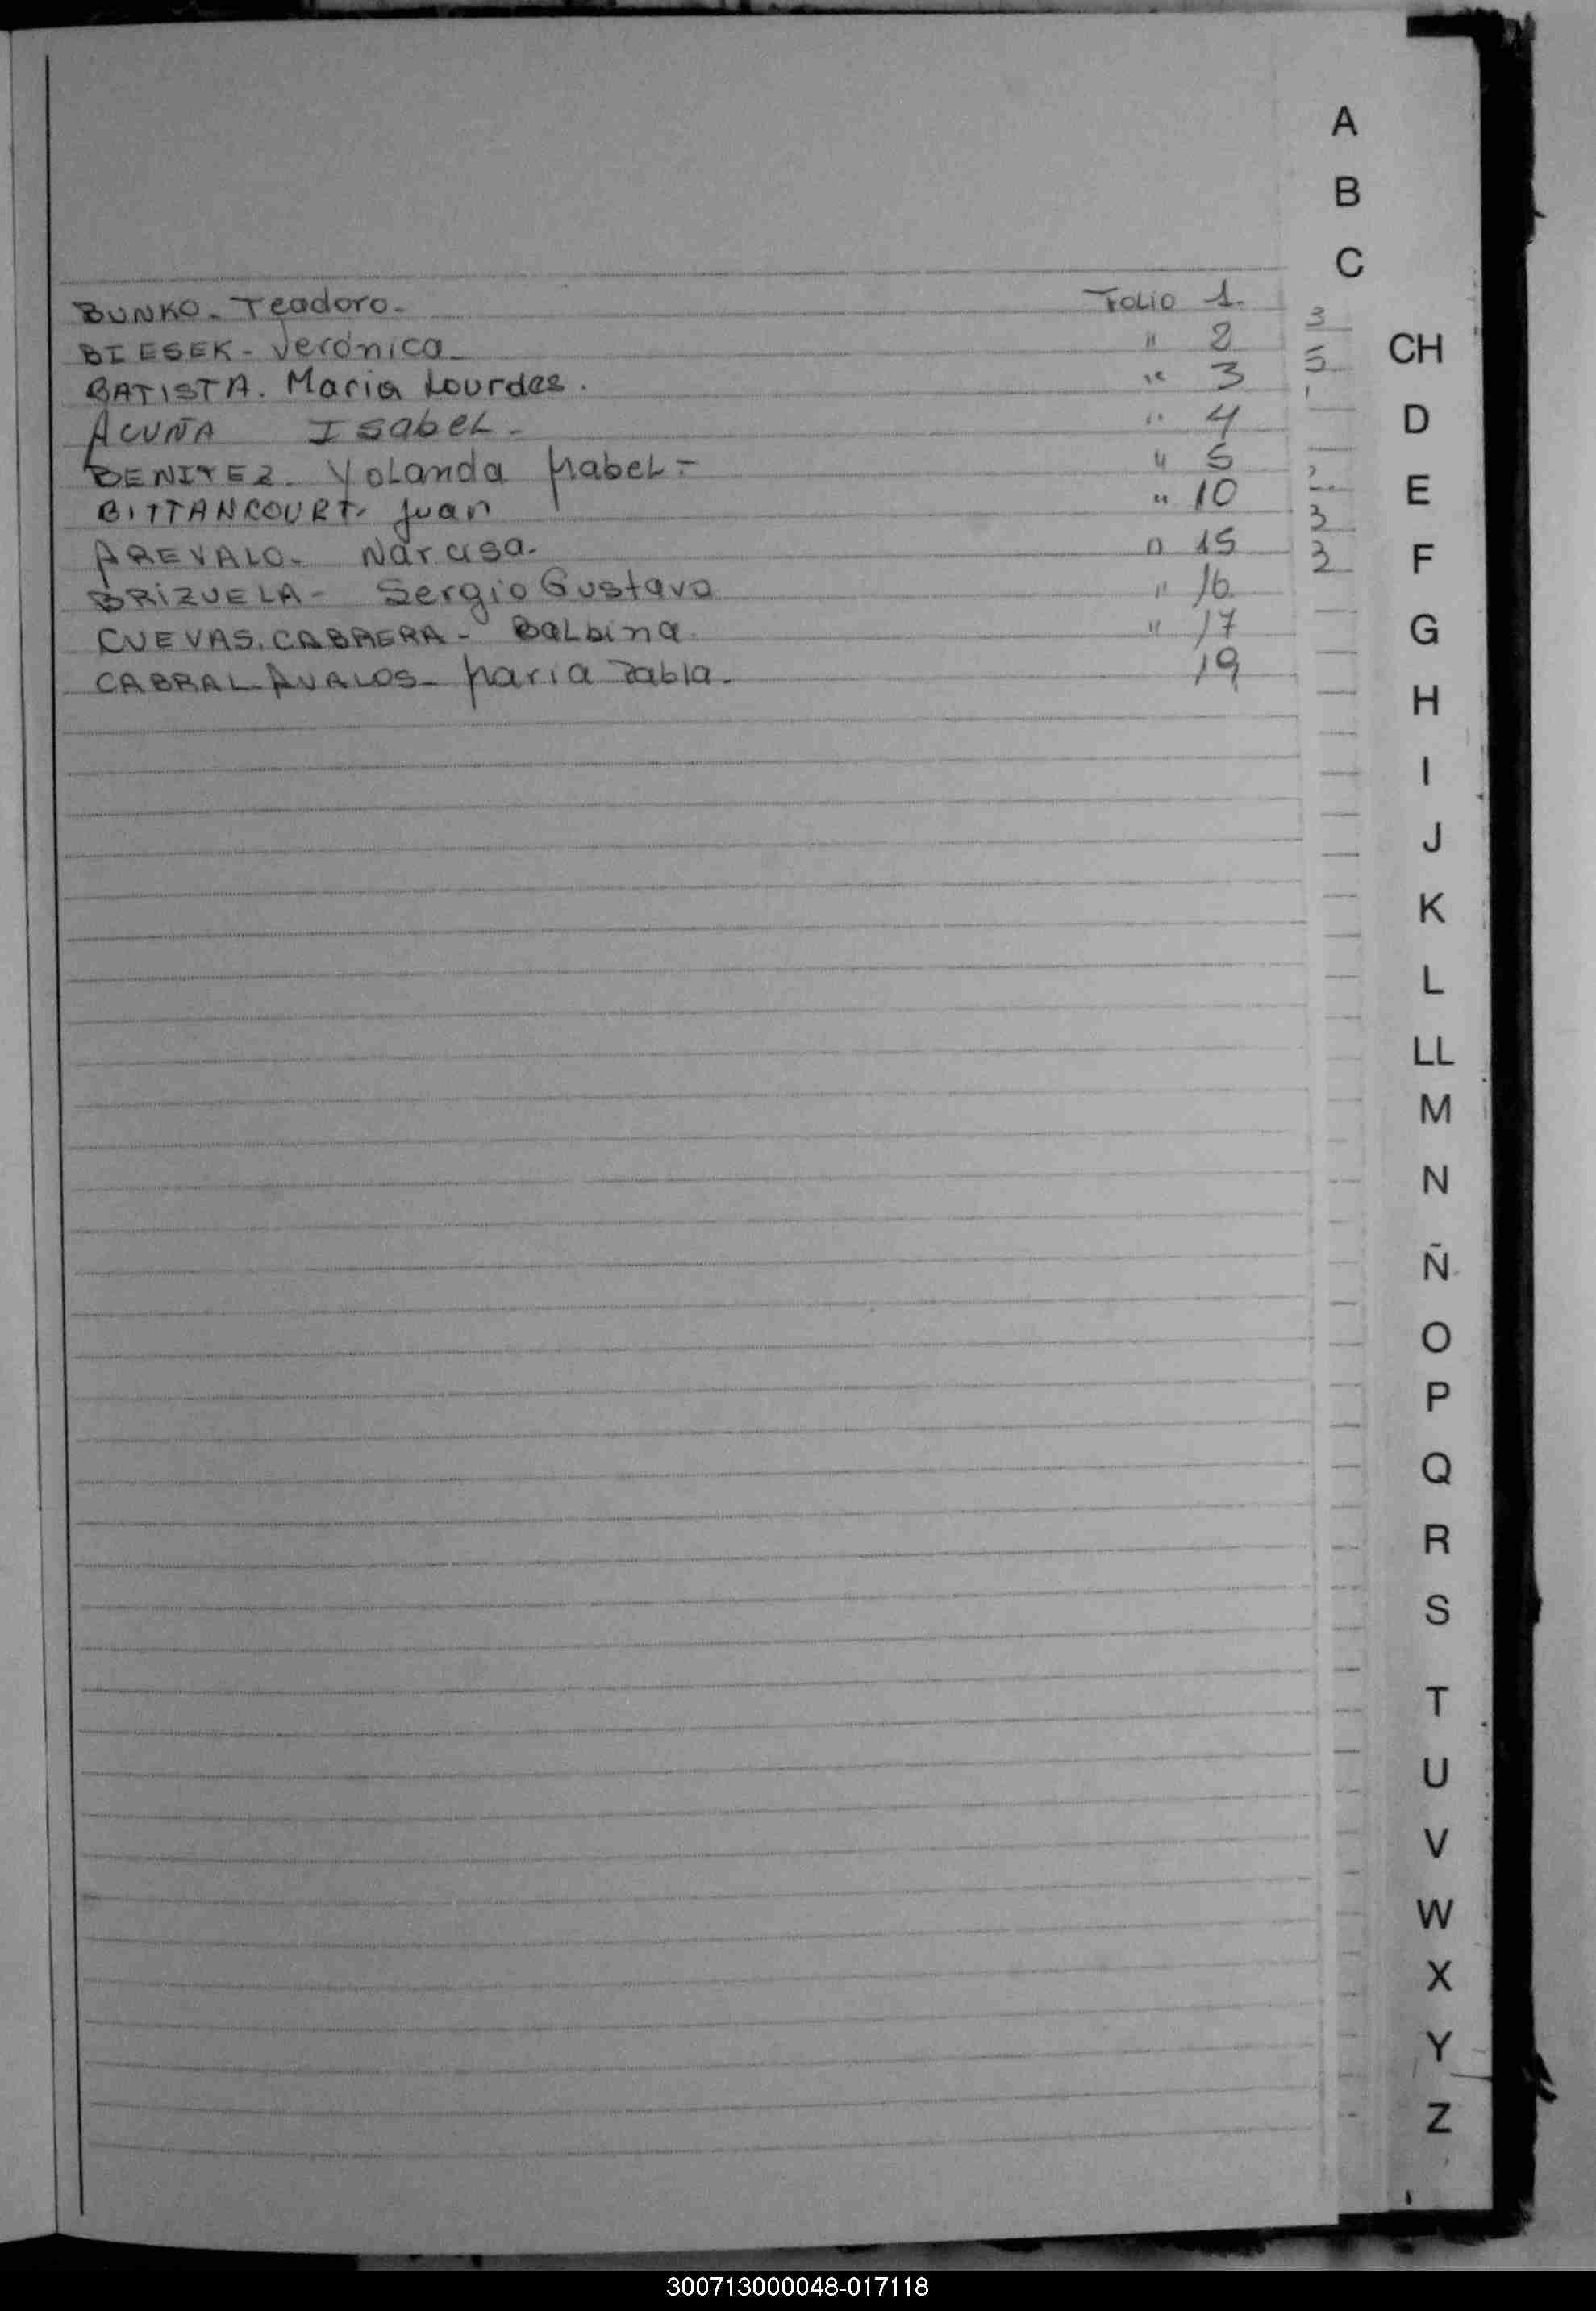 A
B
C
BUNKO - Teodoro - Folio 1.
BIESEK - Verónica - " 2
BATISTA. Maria Lourdes. " 3
ACUÑA Isabel - " 4
BENITEZ - Yolanda Mabel - " 5
BITTANCOURT - Juan " 10
AREVALO - Narcisa - " 15
BRIZUELA - Sergio Gustavo " 16
CUEVAS. CABRERA - Balbina " 17
CABRAL AVALOS - Maria 19
3
5
3
3
CH
D
E
F
G
H
I
J
K
L
LL
M
N
Ñ
O
P
Q
R
S
T
U
V
W
X
Y
Z
300713000048-017118